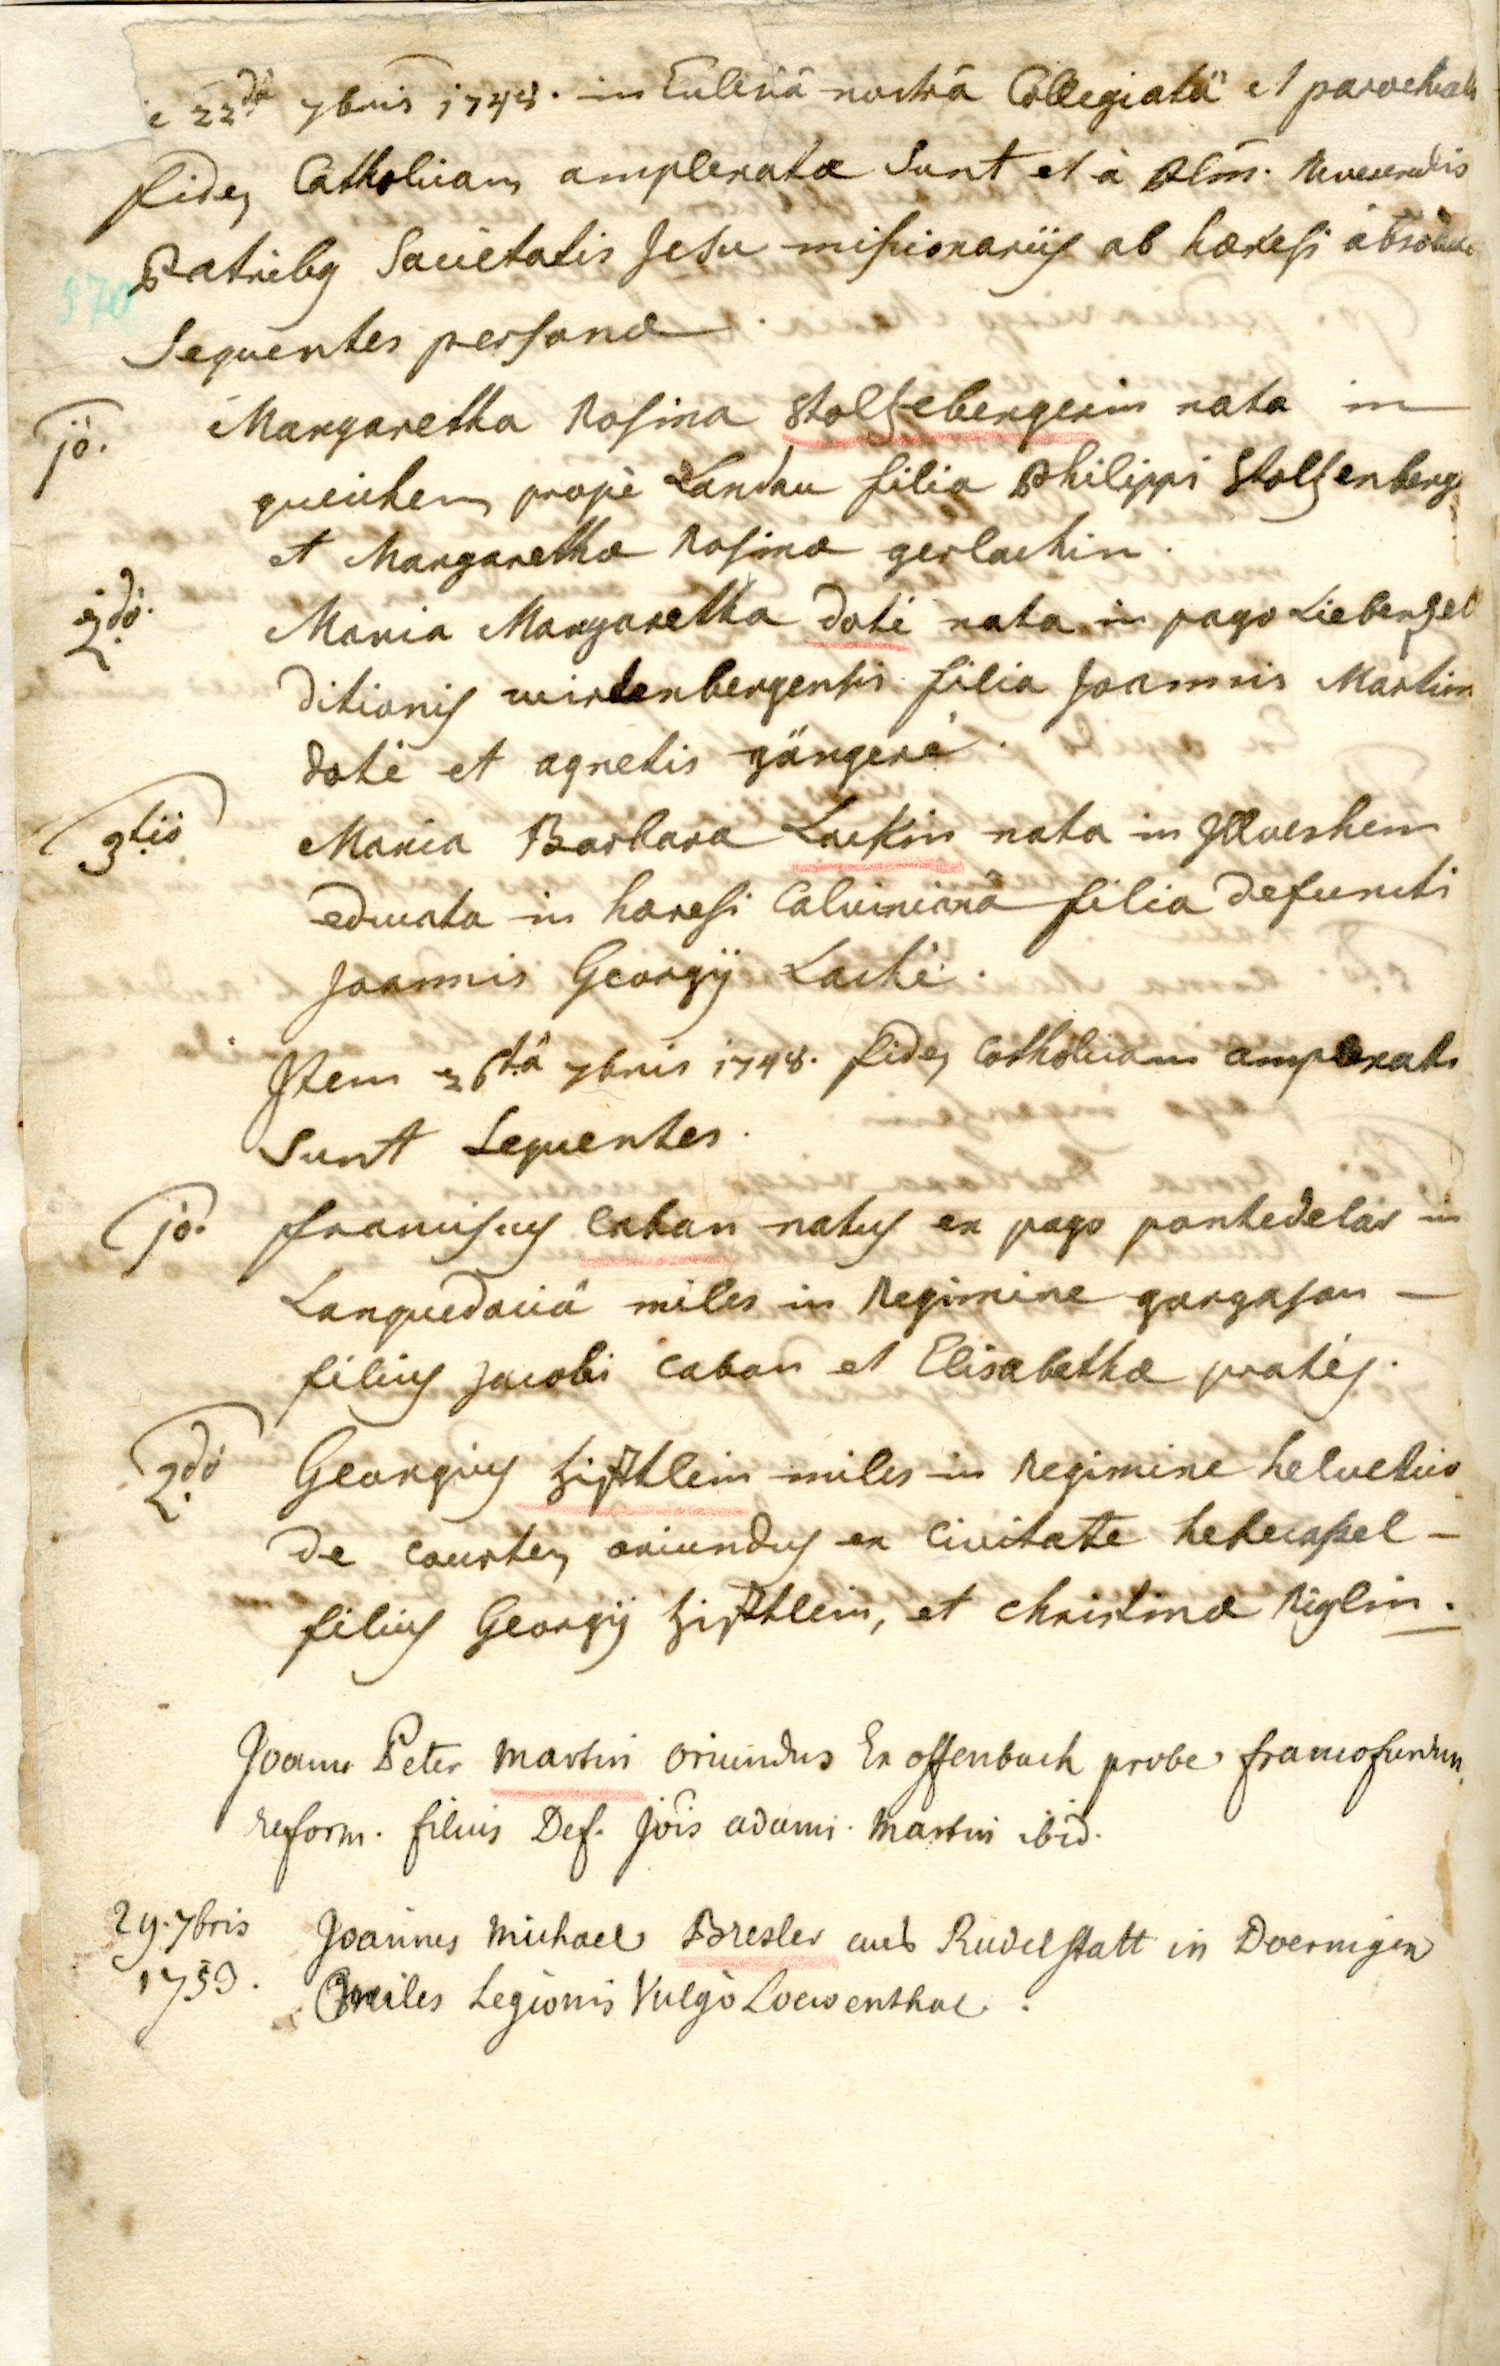 e 22dâ 7bris 1748. in Ecclesiâ nostrâ Collegiatâ et parochiali
fidem Catholicam amplexatae sunt et à Plm. Reverendis
Patribus Societatis Jesu missionariis ab haeresi absolutae
Sequentes personae.
1o. Margaretha Rosina Stoltzebergerin nata in
queichem propè Landau filia Philippi Stoltzenberg
et Margarethae Rosinae gerlachin.
2do. Maria Margaretha doté nata in pago Liebenzel
ditionis wirtenbergensis filia Joannis Martini
doté et agnetis gängeré.
3tiò Maria Barbara Lackin nata in Jllveshem
educata in haeresi Calvinianâ filia defuncti
Joannis Georgij Laché.
Item 26tâ 7bris 1748. fidem Catholicam amplexati
sunt sequentes.
1o. franciscus Caban natus ex pago pontedelar in
Languedociâ miles in Regimine gargasan —
filius jacobi caban et Elisabethae pratés.
2dò Georgius miles in Regimine helvetico
de courten oriundus ex Civitate
filius Georgij et christinae Riglin.
Joann Peter Martin oriundus Ex offenbach probe francofurtum.
reform. filius Def. Jois adami. Martin ibid.
29. 7bris Joannes Michael Bresler aus Rudelstatt in Doeringen
1759. Miles Legionis Vulgò Loewenthal.
570